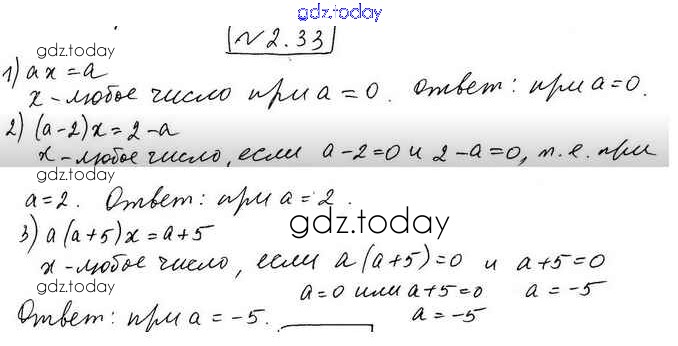 gdz.today
№2.33
gdz.today
1) ax = a
x - любое число при a = 0. Ответ: при a = 0.
gdz.today
2) (a-2)x = 2-a
x - любое число, если a-2=0 и 2-a=0, т.е. при
a = 2. Ответ: при a = 2.
gdz.today
3) a(a+5)x = a+5
x - любое число, если a(a+5)=0 и a+5=0
gdz.today
a=0 или a+5=0 a = -5
a = -5
Ответ: при a = -5.